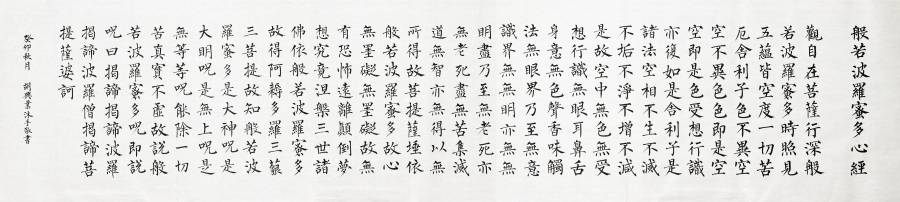 般若波羅蜜多心經
觀自在菩薩行深般
若波羅蜜多時照見
五蘊皆空度一切苦
厄舍利子色不異空
空不異色色即是空
空即是色受想行識
亦復如是舍利子是
諸法空相不生不滅
不垢不淨不增不減
是故空中無色無受
想行識無眼耳鼻舌
身意無色聲香味觸
法無眼界乃至無意
識界無無明亦無無
明盡乃至無老死亦
無老死盡無苦集滅
道無智亦無得以無
所得故菩提薩埵依
般若波羅蜜多故心
無罣礙無罣礙故無
有恐怖遠離顛倒夢
想究竟涅槃三世諸
佛依般若波羅蜜多
故得阿耨多羅三藐
三菩提故知般若波
羅蜜多是大神呪是
大明呪是無上呪是
無等等呪能除一切
苦真實不虛故說般
若波羅蜜多呪即說
呪曰揭諦揭諦波羅
揭諦波羅僧揭諦菩
提薩婆訶
癸卯秋月 沐手敬書